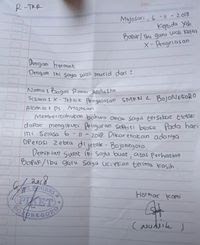 R-TKR
Mojosari, 6-11-2018
Kepada Yth
Bapak/Ibu guru wali kelas
X - Pengelasan
Dengan hormat
Dengan ini saya wali murid dari :
Nama : Bagas
Teknik Pengelasan SMKN 2 BOJONEGORO
Alamat :
Memberitahukan bahwa anak saya tersebut tidak
dapat mengikuti Pelajaran seperti biasa Pada hari
ini. Selasa 6-11-2018. Dikarenakan adanya
Operasi Zebra di - Bojonegoro.
Demikian Surat ini saya buat, atas Perhatian
Bapak/Ibu guru saya ucapkan terima kasih
Hormat Kami
PIKET